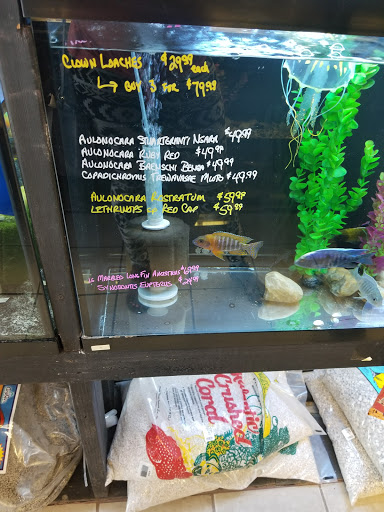 Clown Loaches $29.99 each
↳ Buy 3 for $79.99
Aulonocara Stuartgranti Ngara $49.99
Aulonocara Ruby Red $49.99
Aulonocara Baenschi Benga $49.99
Copadichromis Trewavasae Mloto $49.99
Aulonocara Rostratum $59.99
Lethrinops Red Cap $59.99
Marbled Long Fin Ancistrus $69.99
Synodontis Eupterus $24.99
Crushed
Coral